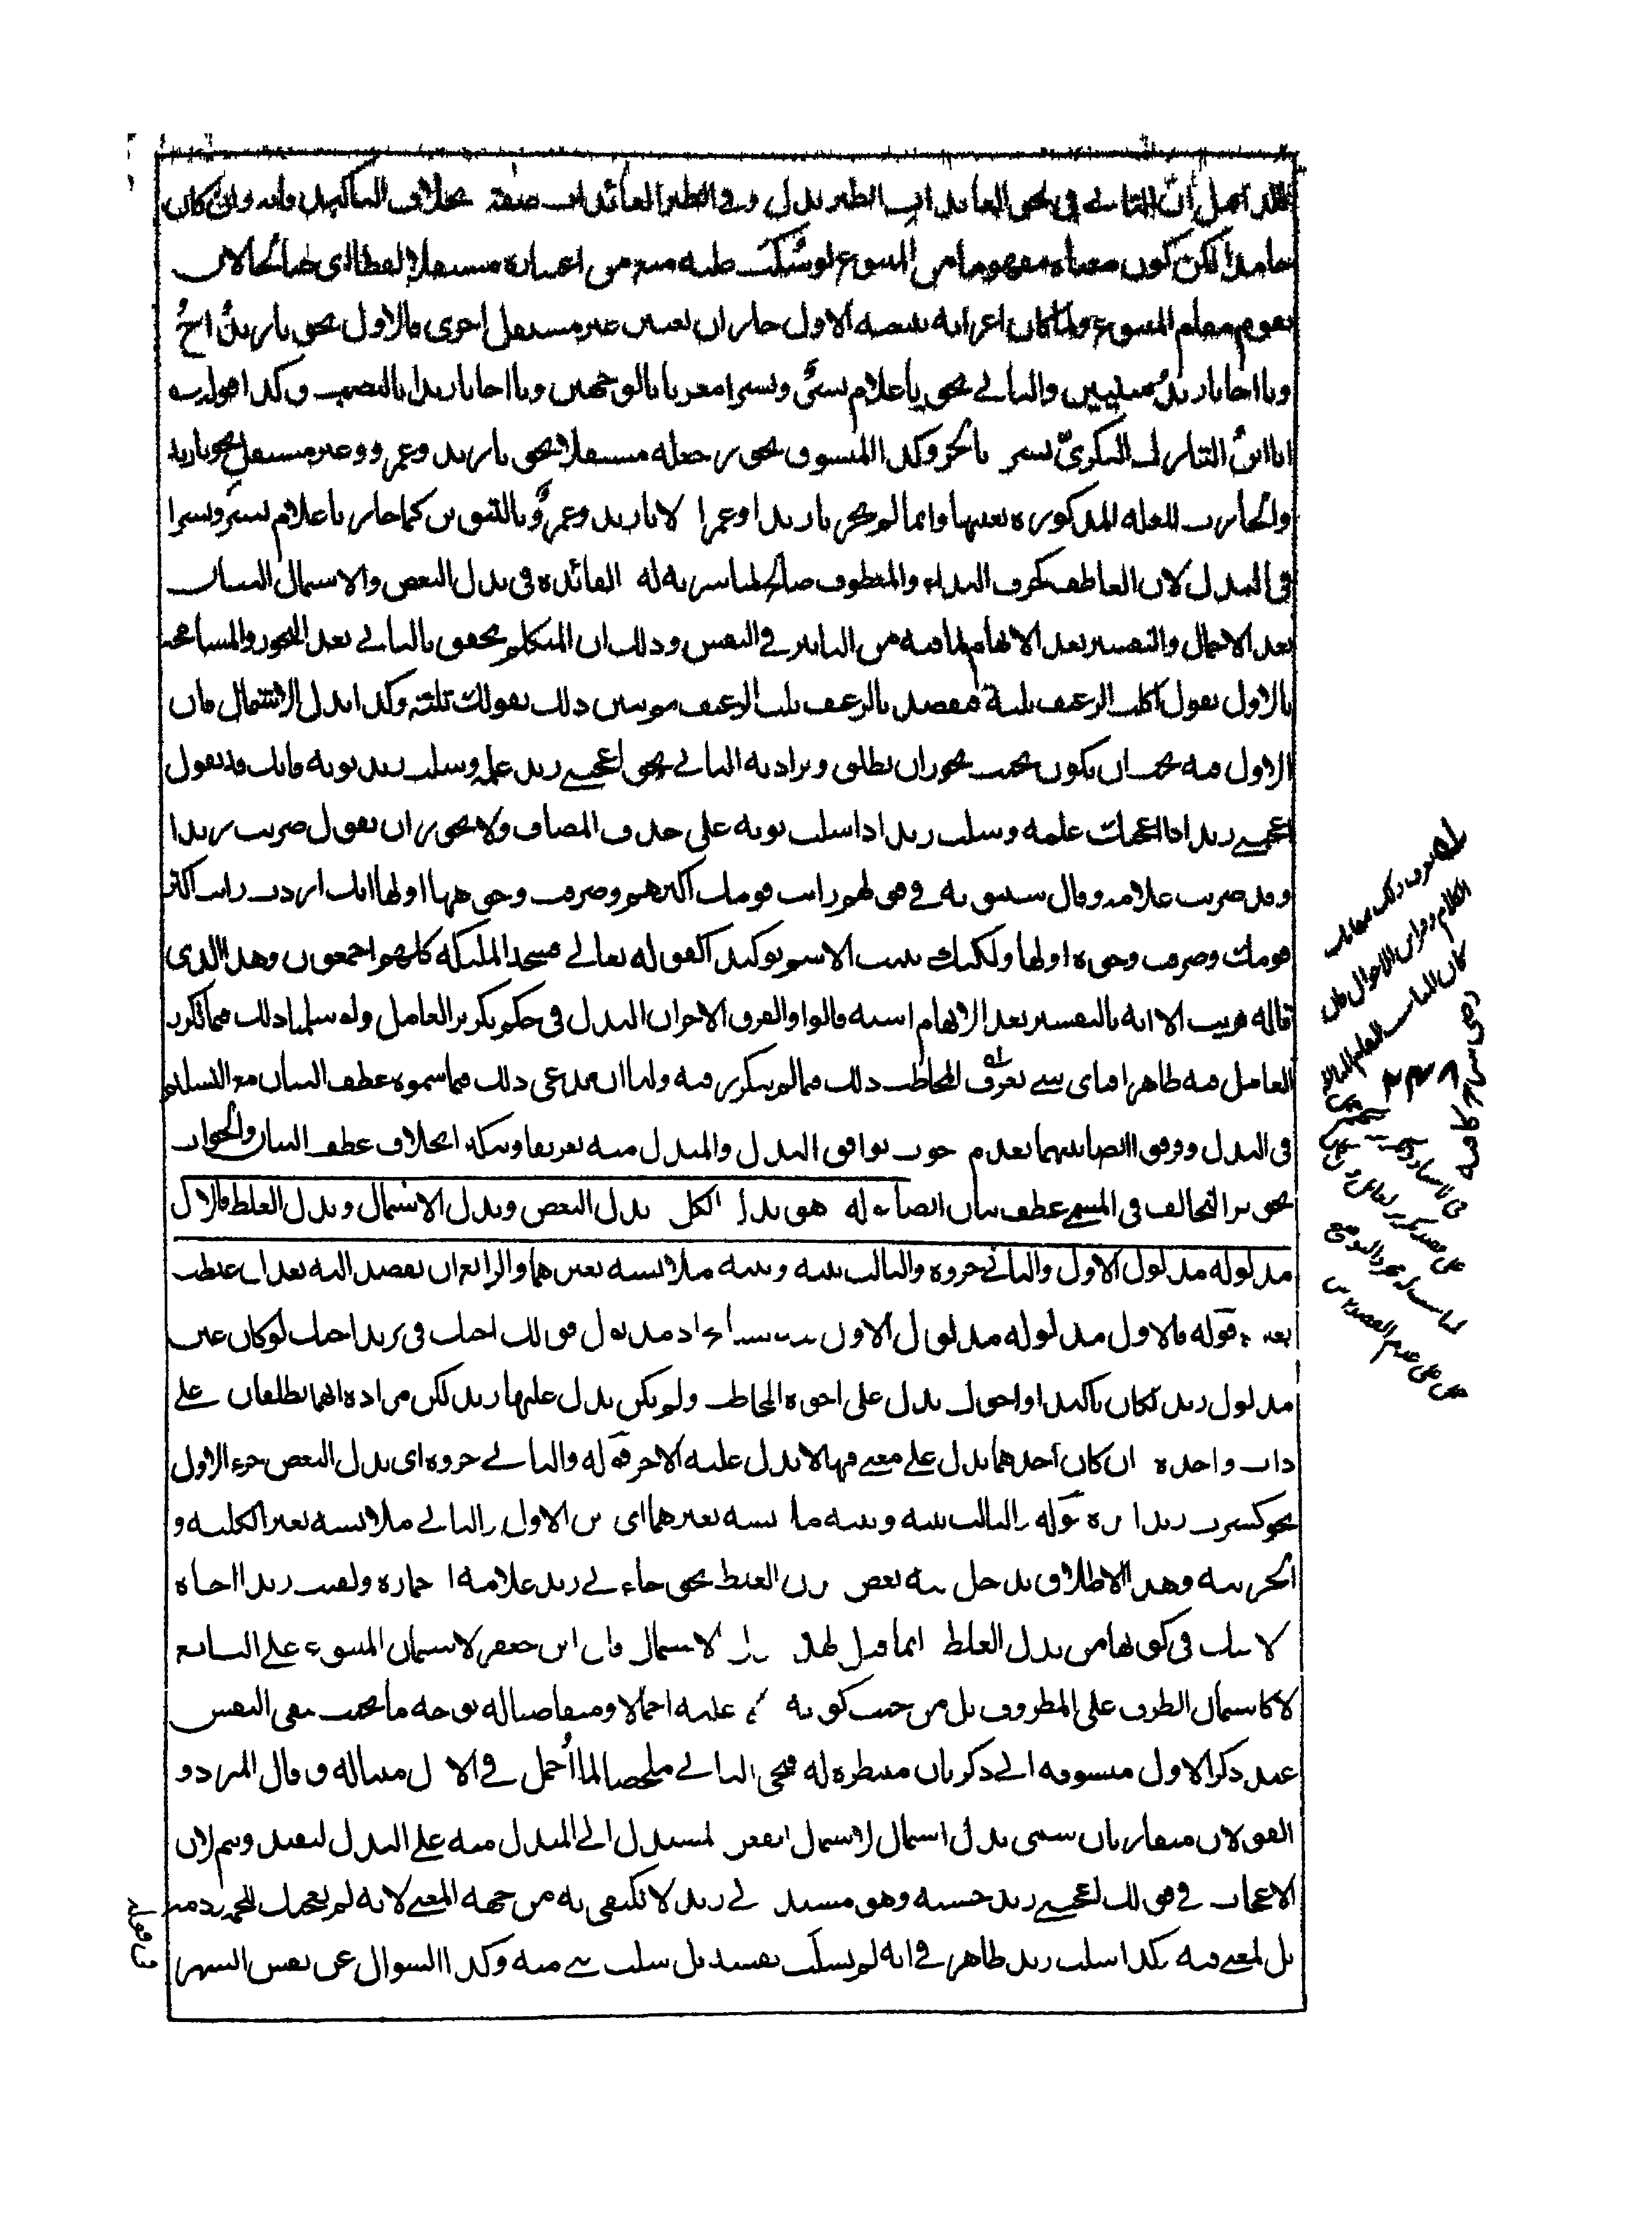 فقد اجمل ان الثانى فى نحو العائذات الطير بدل وفى الطير العائذات صفة بخلاف التاكيد فانه وان كان
جامدا لكن كون معناه مفهوما من المتبوع لو سكت عليه منع من اعتباره مستقلا لفظا اى صالحا لان
يقوم مقام المتبوع ولما كان اعرابه يشبه الاول جاز ان يعتبر غير مستقل اخرى فالاول نحو يا زيد اخ
ويا اخانا زيد مبنيين والثانى نحو يا غلام بشر وبشرا معربا بالوجهين ويا اخانا زيدا بالنصب وكذا قوله
انا ابن التارك البكرى بشر بالجر وكذا المنسوق يجوز جعله مستقلا نحو يا زيد وعمرو وغير مستقل نحو يا زيد
والحارث للعلة المذكورة بعينها وانما لم يجز يا زيدا وعمرا لا يا زيد وعمرو بالتنوين كما جاز يا غلام بشر وبشرا
فى البدل لان العاطف كحرف النداء والمعطوف صالح لمباشرته له الفائدة فى بدل البعض والاشتمال البيان
بعد الاجمال والتفسير بعد الابهام لما فيه من التاثير فى النفس وذلك ان المتكلم يحقق بالثانى بعد التجوز والمسامحة
بالاول يقول اكلت الرغيف ثلثه فتقصد بالرغيف ثلث الرغيف ثم تبين ذلك بقولك ثلثه وكذا بدل الاشتمال فان
الاول فيه يجب ان يكون بحيث يجوز ان يطلق ويراد به الثانى نحو اعجبنى زيد علمه وسلب زيد ثوبه فانك قد تقول
اعجبنى زيد اذا اعجبك علمه وسلب زيد اذا سلب ثوبه على حذف المضاف ولا يجوز ان تقول ضربت زيدا
وقد ضربت غلامه وقال سيبويه فى قولهم رايت قومك اكثرهم وصرفت وجوهها اولها انك اردت رايت اكثر
قومك وصرفت وجوه اولها ولكنك ثنيت الاسم توكيدا كقوله تعالى فسجد الملئكة كلهم اجمعون وهذا الذى
قاله قريب الا انه بالتفسير بعد الابهام اشبه قالوا والفرق الاخر ان البدل فى حكم تكرير العامل ولو سلمنا ذلك فيما تكرر
العامل فيه ظاهرا فباى شىء يعرف المخاطب ذلك فيما لم يتكرر فيه ولنا ان ندعى ذلك فيما سموه عطف البيان مع التسليم
فى البدل وفرقوا ايضا بينهما بعدم وجوب توافق البدل والمبدل منه تعريفا وتنكيرا بخلاف عطف البيان والجواب
تجويز التخالف فى المسمى عطف بيان ايضا قوله هو بدل الكل بدل البعض وبدل الاشتمال وبدل الغلط فالاول
مدلوله مدلول الاول والثانى جزوه والثالث بينه وبينه ملابسة بغيرهما والرابع ان تقصد اليه بعد ان غلطت
بغيره قوله فالاول مدلوله مدلول الاول مدلول قولك اخيك فى بزيد اخيك لو كان عين
مدلول زيد لكان تاكيدا واخوك يدل على اخوة المخاطب ولم يكن يدل عليها زيد لكن مراده انهما يطلقان على
ذات واحدة ان كان احدهما يدل على معنى فيها لا يدل عليه الاخر قوله والثانى جزوه اى بدل البعض جزء الاول
نحو كسرت زيدا يده قوله والثالث بينه وبينه ملابسة بغيرهما اى بين الاول والثانى ملابسة بغير الكلية و
الجزئية وهذا الاطلاق يدخل فيه بعض بدل الغلط نحو جاءنى زيد غلامه او حماره ولقيت زيدا اخاه
لا شك فى كونها من بدل الغلط انما قيل لهذا بدل الاشتمال قال ابن جعفر لاشتمال المتبوع على التابع
لا كاشتمال الظرف على المظروف بل من حيث كونه دالا عليه اجمالا ومتقاضيا له بوجه ما بحيث تبقى النفس
عند ذكر الاول متشوقة الى ذكر ثان منتظرة له فيجئ الثانى ملخصا لما اجمل فى الاول مبينا له وقال المبرد و
القولان متقاربان سمى بدل اشتمال لاشتمال الفعل المسند الى المبدل منه على البدل ليفيد ويتم لان
الاعجاب فى قولك اعجبنى زيد حسنه وهو مسند الى زيد لا تكتفى به من جهة المعنى لانه لم يعجبك للحمه ودمه
بل لمعنى فيه وكذا سلب زيد ظاهر فى انه لم يسلب نفسه بل سلب شىء منه وكذا السوال عن نفس الشهر